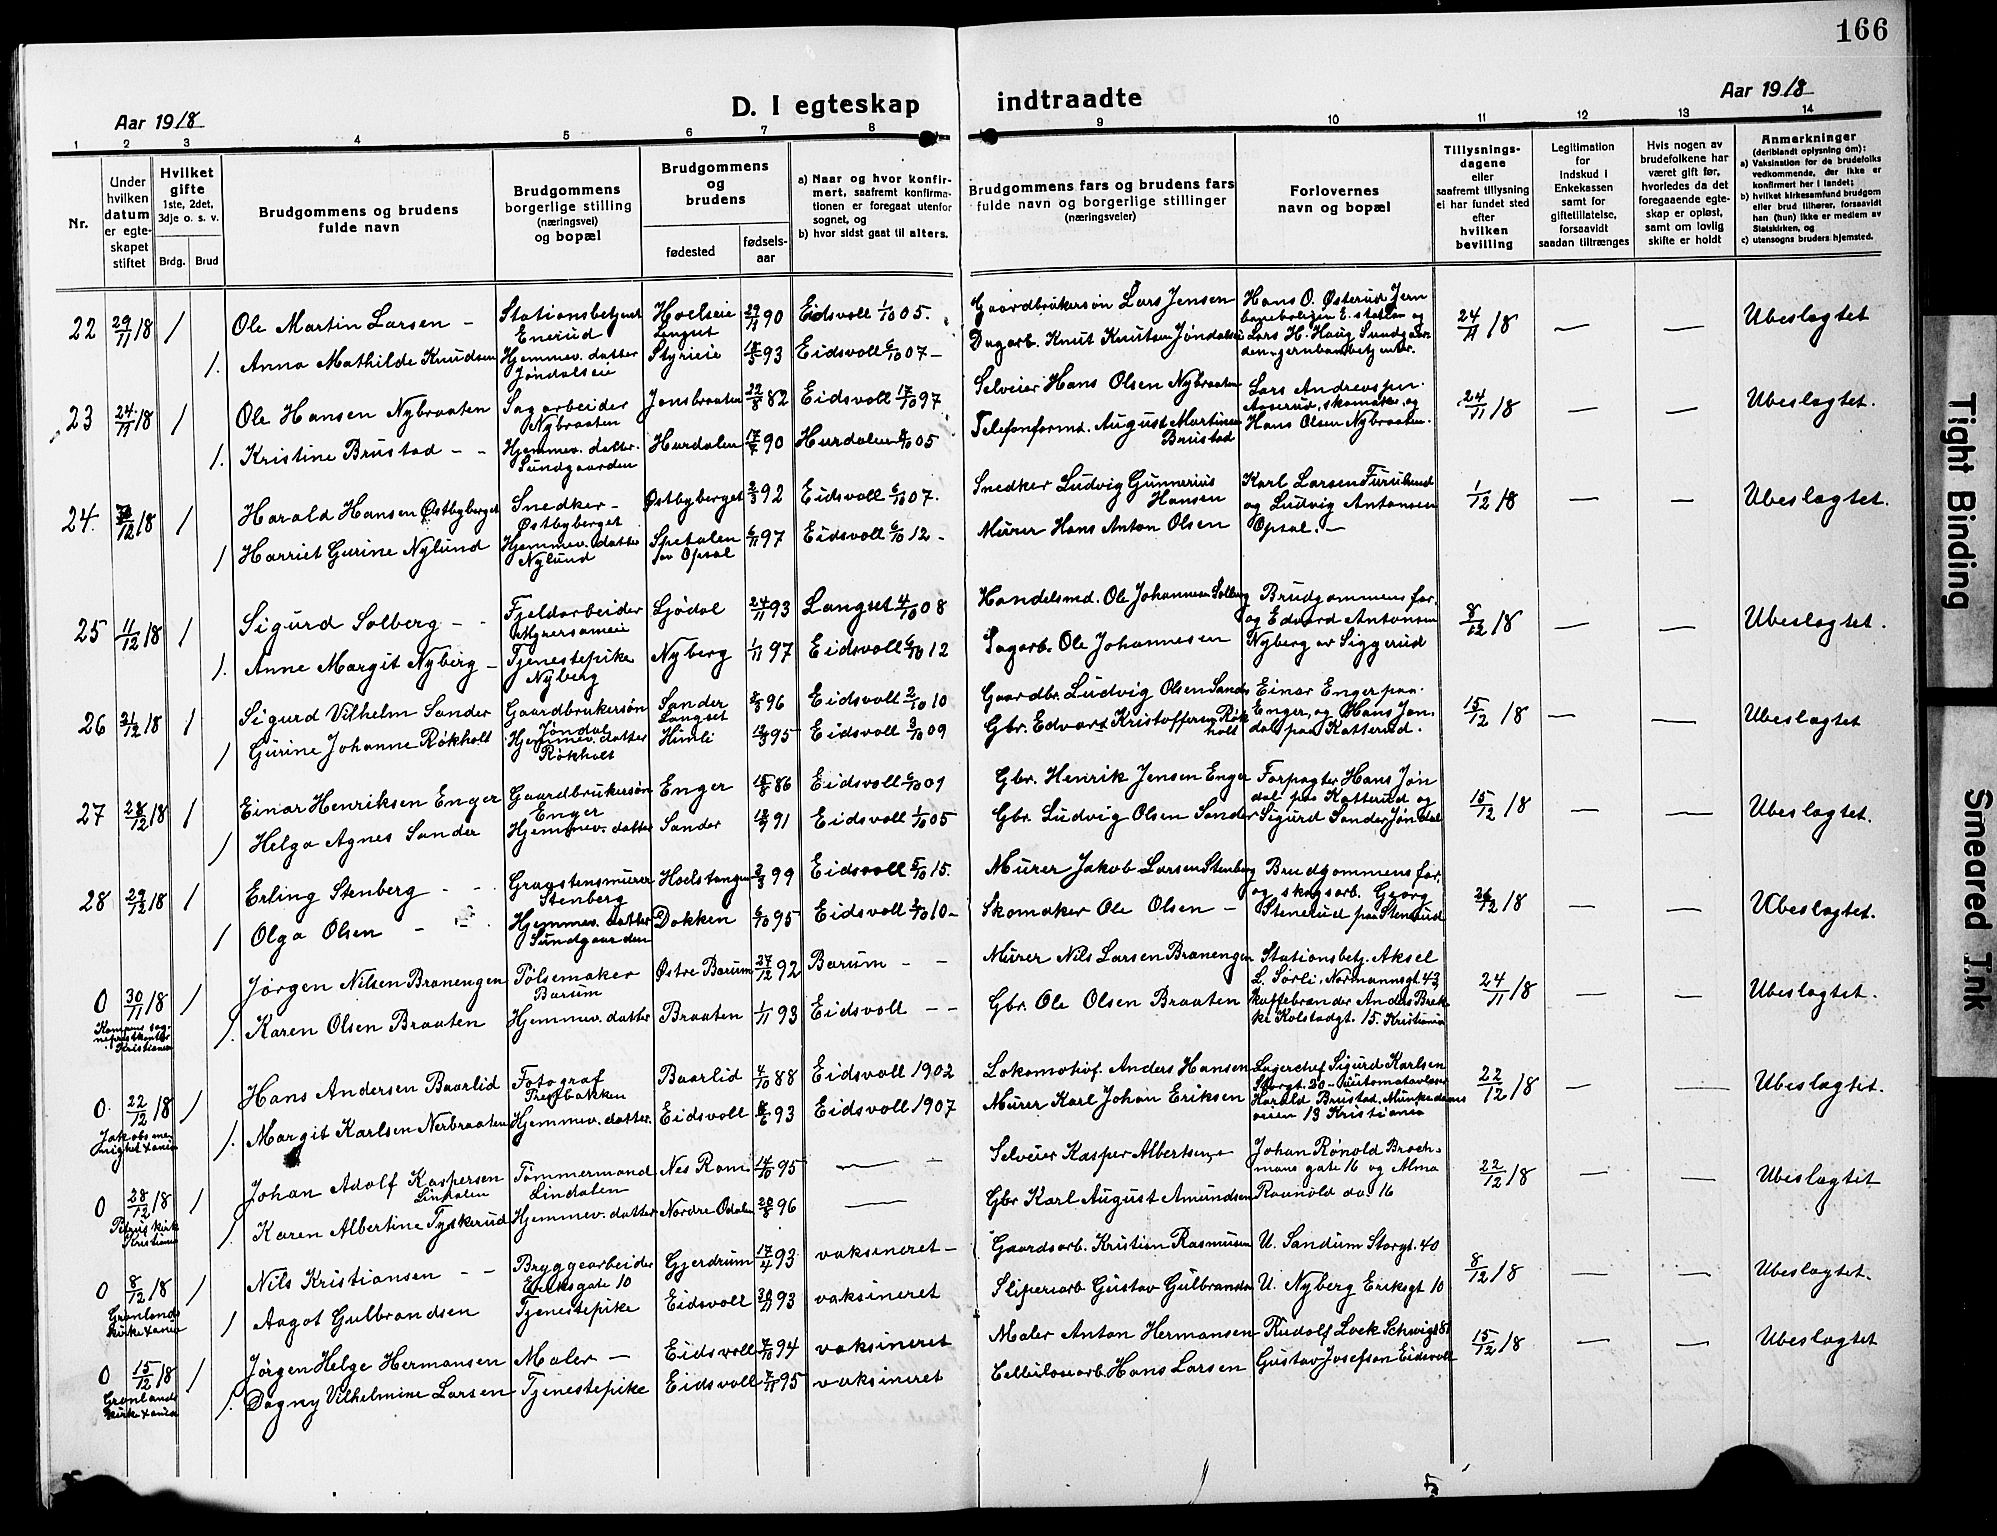 166
Aar 1918
D. I egteskap indtraadte
Aar 1918
1 2 3 4 5 6 7 8 9 10 11 12 13 14
Nr.
Under hvilken datum er egteskapet stiftet
Hvilket gifte 1ste, 2det, 3dje o. s. v.
Brdg. Brud
Brudgommens og brudens fulde navn
Brudgommens borgerlige stilling (næringsvei) og bopæl
Brudgommens og brudens
fødested
fødselsaar
a) Naar og hvor konfirmert, saafremt konfirmationen er foregaat utenfor sognet, og
b) hvor sidst gaat til alters.
Brudgommens fars og brudens fars fulde navn og borgerlige stillinger (næringsveier)
Forlovernes navn og bopæl
Tillysningsdagene eller saafremt tillysning ei har fundet sted efter hvilken bevilling
Legitimation for Indskud i Enkekassen samt for giftetillatelse, forsaavidt saadan tiltrænges
Hvis nogen av brudefolkene har været gift før, hvorledes da det foregaaende egteskap er opløst, samt om lovlig skifte er holdt
Anmerkninger (deriblandt oplysning om):
a) Vaksination for de brudefolks vedkommende, der ikke er konfirmert her i landet;
b) hvilket kirkesamfund brudgom eller brud tilhører, forsaavidt han (hun) ikke er medlem av Statskirken, og
c) utensogns bruders hjemsted.
22 29/11 18 / Ole Martin Larsen – Stationsbetjent Enerud Hoelseie Langset 90 Eidsvoll 1/10 05. Gaardbrukersøn Lars Jensen Hans O. Østerud Jernbaneboligen E. station og 24/11 18 — — Ubeslægtet
1. Anna Mathilde Knudsen Hjemmev. datter Jøndalseie Styrieie 93 Eidsvoll 6/10 07 – Dagarb. Knut Knutsen Jøndalseie Lars H. Haug Sundgaarden, jernbanebetjenter.
23 24/11 18 / Ole Hansen Nybraaten Sagarbeider Nybraaten Jonsbraaten 22/8 82 Eidsvoll 17/10 97 Selveier Hans Olsen Nybraaten Lars Andreassen Aaserud, skomaker, og 24/11 18 — — Ubeslægtet.
1. Kristine Brustad – – Hjemmev. datter. Sundgaarden Hurdalen 90 Hurdalen 8/10 05 Telefonformd. August Martinsen Brustad Hans Olsen Nybraaten.
24. 18 / Harald Hansen Østbyberget Snedker – Østbyberget Østbyberget 92 Eidsvoll 6/10 07. Snedker Ludvig Gunnerius Hansen Karl Larsen Furulund og Ludvig Antonsen 1/12 18 — — Ubeslægtet.
/ Harriet Gurine Nylund Hjemmev. datter Nylund Spetalen av Opsal 6/11 97 Eidsvoll 6/10 12 – Murer Hans Anton Olsen Opsal. –
25 11/12 18 / Sigurd Solberg – – Fjeldarbeider Myrersameie Ljødal 24/11 93 Langset 4/10 08 Handelsmd. Ole Johannesen Solberg Brudgommens far. og Edvard Antonsen 8/12 18 — — Ubeslægtet.
1. Anne Margit Nyberg – Tjenestepike Nyberg Nyberg 1/11 97 Eidsvoll 6/10 12 Sagarb. Ole Johannesen Nyberg av Siggerud
26 31/12 18 / Sigurd Vilhelm Sander Gaardbrukersøn Jøndal Sander Langset 96 Eidsvoll 2/10 10 Gaardbr. Ludvig Olsen Sander Einar Enger paa Enger, og Hans Jøn- 15/12 18 — — Ubeslægtet
/ Gurine Johanne Røkholt Hjemmev. datter Røkholt Himli 95 Eidsvoll 3/10 09 Gbr. Edvart Kristoffersen Røkholt dal paa Katterud.
27 28/12 18 / Einar Henriksen Enger Gaardbrukersøn Enger Enger 15/8 86 Eidsvoll 6/10 01 Gbr. Henrik Jensen Enger Forpagter Hans Jøndal paa Katterud og 15/12 18 — — Ubeslægtet.
/ Helga Agnes Sander Hjemmev. datter Sander 91 Eidsvoll 1/10 05 Gbr. Ludvig Olsen Sander Sigurd Sander Jøndal
28 29/12 18 / Erling Stenberg – – Graastensmurer Stenberg Hoelstangen 99 Eidsvoll 5/10 15. Murer Jakob Larsen Stenberg Brudgommens far. og skogsarb. Georg 26/12 18 — — Ubeslægtet.
/ Olga Olsen – – Hjemmev. datter Sundgaarden Dokken 6/10 95 Eidsvoll 2/10 10 – Skomaker Ole Olsen – Stenerud paa Stenerud
0 30/11 18 / Jørgen Nilsen Branengen Pølsemaker Bærum Østre Bærum 27/12 92 Bærum – – Murer Nils Larsen Branengen Stationsbetj. Aksel L. Sørli, Normannsgt. 43, 24/11 18 — — Ubeslægtet.
Kampens sogneprestkontor Kristiania 1. Karen Olsen Braaten Hjemmev. datter Braaten 1/11 93 Eidsvoll – – Gbr. Ole Olsen Braaten kaffebrænder Anders Brekke Kolstadgt. 15. Kristiania
0. 22/12 18 / Hans Andersen Baarlid Fotograf Prestbakken Baarlid 4/10 88 Eidsvoll 1902 Lokomotivf. Anders Hansen Lagerchef Sigurd Karlsen Storgt. 20 – 22/12 18 — — Ubeslægtet.
Jakobs menighet Xania 1. Margit Karlsen Nerbraaten Hjemmev. datter. Eidsvoll 93 Eidsvoll 1907 Murer Karl Johan Eriksen Harald Brustad, Munkedamsveien 13 Kristiania
0 28/12 18 / Johan Adolf Kaspersen Lindalen Tømmermand Lindalen Nes Rom. 14/10 95 — – Selveier Kasper Albertsen – Johan Rønold Brochmans gate 16 og Alma 22/12 18 — — Ubeslægtet
Petrus kirke Kristiania 1. Karen Albertine Tyskerud Hjemmev. datter Nordre Odalen 20/8 96 — Gbr Karl August Amundsen do. 16
0 8/12 18 / Nils Kristiansen – – Bryggearbeider Eriksgate 10 Gjerdrum 17/4 93 vaksineret – Gaardsarb. Kristian Rasmusen U. Sandum Storgt. 40 8/12 18 — — Ubeslægtet.
Grønlands kirke Xania / Aagot Gulbrandsen Tjenestepike Eidsvoll 30/11 93 vaksineret Sliperiarb Gustav Gulbrandsen U. Nyberg Eriksgt 10
0 15/12 18 / Jørgen Helge Hermansen Maler – Eidsvoll 7/10 94 vaksineret Maler Anton Hermansen Rudolf 15/12 18 — — Ubeslægtet
Grønlands kirke Xania 1. Dagny Vilhelmine Larsen Tjenestepike Eidsvoll 7/11 95 vaksineret Cellulosearb. Hans Larsen Gustav Josefson Eidsvoll
Tight Binding
Smeared Ink